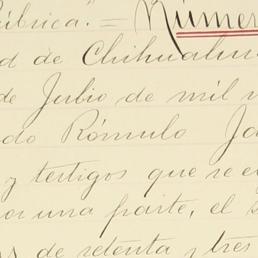 úbrica".= Númer
d de Chihuahu
de Julio de mil n
do Rómulo Ja
y testigos que se e
or una parte, el s
s de setenta y tres